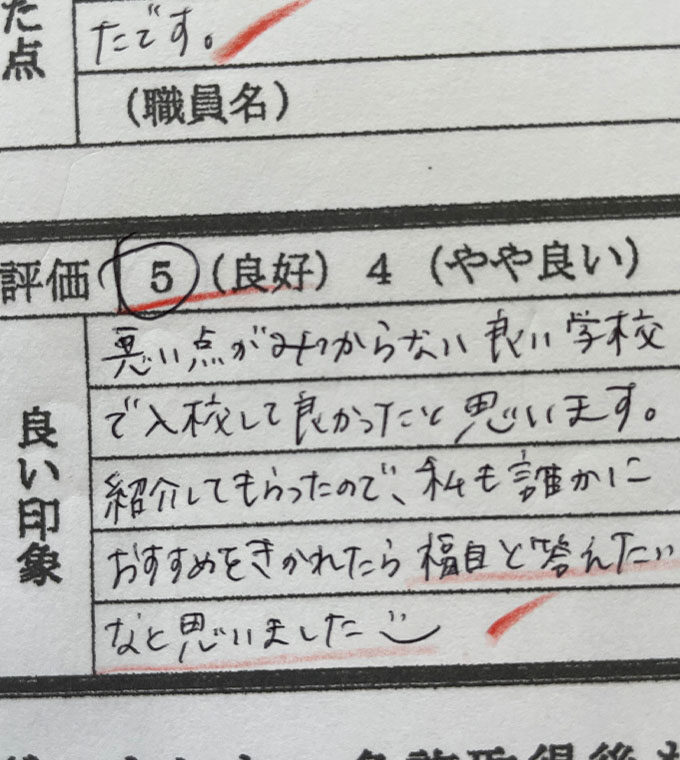 た点
たです。
(職員名)
評価 5 (良好) 4 (やや良い)
良い印象
悪い点がみつからない良い学校
で入校して良かったなと思います。
紹介してもらったので、私も誰かに
おすすめをきかれたら福自と答えたい
なと思いました
免許取得後